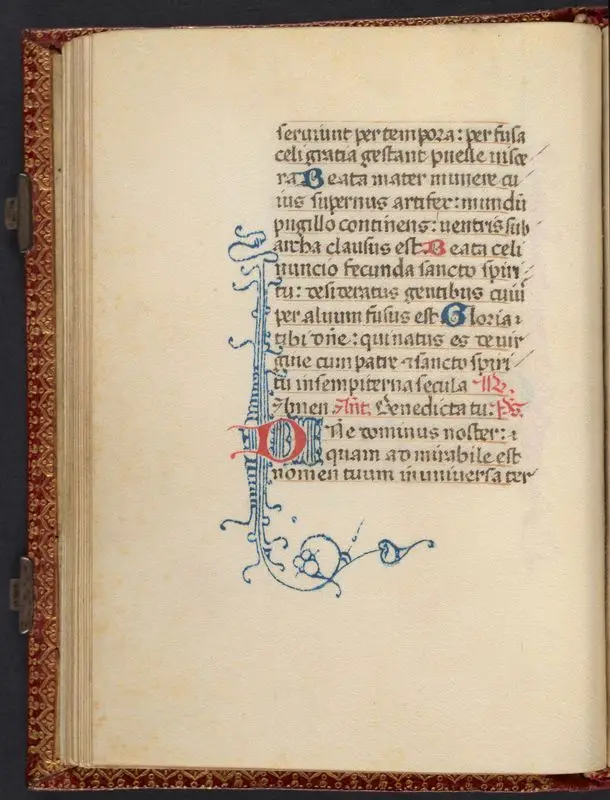 seruiunt per tempora: per fusa
celi gratia gestant puelle uisce
ra Beata mater munere cu
ius supernus artifex: mundū
pugillo continens: uentris sub
archa clausus est Beata celi
nuncio fecunda sancto spiri
tu: desideratus gentibus cuiū
per aluum fusus est Gloria ⁊
tibi dn̄e: qui natus es de uir
gine cum patre ⁊ sancto spiri
tu in sempiterna secula
Amen Ant. Benedicta tu: Ps.
DNe dominus noster: ⁊
quam ad mirabile est
nomen tuum in uniuersa ter